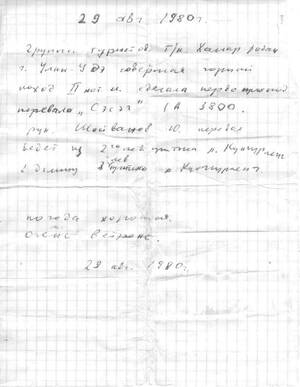 29 авг 1980г.
Группа туристов т/к Хамар Дабан
г. Улан-Удэ совершая горный
поход II кат. сл. сделала первопрохожд.
перевала „Сэсэг" 1А 3800.
рук. Шойванов Ю. перевал
ведет из 2го лев притока р.
в долину лев притока р.
погода хорошая.
очень ветрено.
29 авг. 1980г.